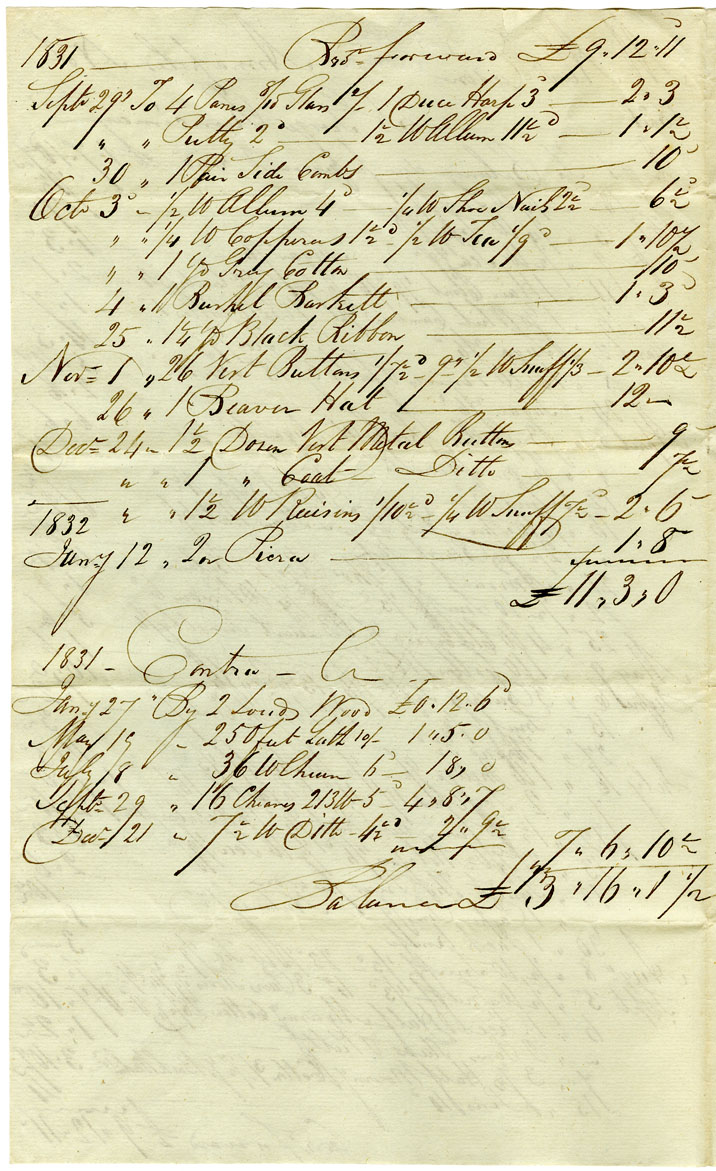 1831 Bro.t forward £9 " 12 " 11
Sept. 29 To 4 Panes 8/10 Glass 2/ 1 Duce Harp 3d 2 " 3
" " Putty 2d 1½ W Allum 11½d 1 " 1½
30 " 1 Pair Side Combs 10
Oct. 3 " ½ W Allum 4d ¼ W Shoe Nails 2½ 6½
" " ¼ W Copperas 1½d ½ W Tea 1/9d 1 " 10½
" " 1 yd Gray Cotton 10
4 " 1 Bushel Baskett 1 " 3
25 " 1¼ yd Black Ribbon 11½
Nov. 1 " 26 Vest Buttons 1/7½d ½ W Snuff 1/3 2 " 10½
26 " 1 Beaver Hat 12 "
Dec. 24 " 1½ Dozen Vest Metal Buttons 9
" " 1 " Coat Ditto 7½
" " 1½ W Raisins 1/10½d ¼ W Snuff 7½ 2 " 6
1832
Jany 12 " 2 oz Picra 1 " 8
£11 " 3 " 0
1831 Contra Cr
Jany 27 " By 2 Loads Wood £0 " 12 " 6
May 19 " 250 feet Lath 10/- 1 " 5 " 0
July 8 " 36 W Cheese 6d 18 " 0
Sept. 29 " 16 Cheases 213 W 5d 4 " 8 " 7
Dec. 21 " 7½ W Ditto 4½d 2 " 9½
7 " 6 " 10½
Balance £3 " 16 " 1 1/2